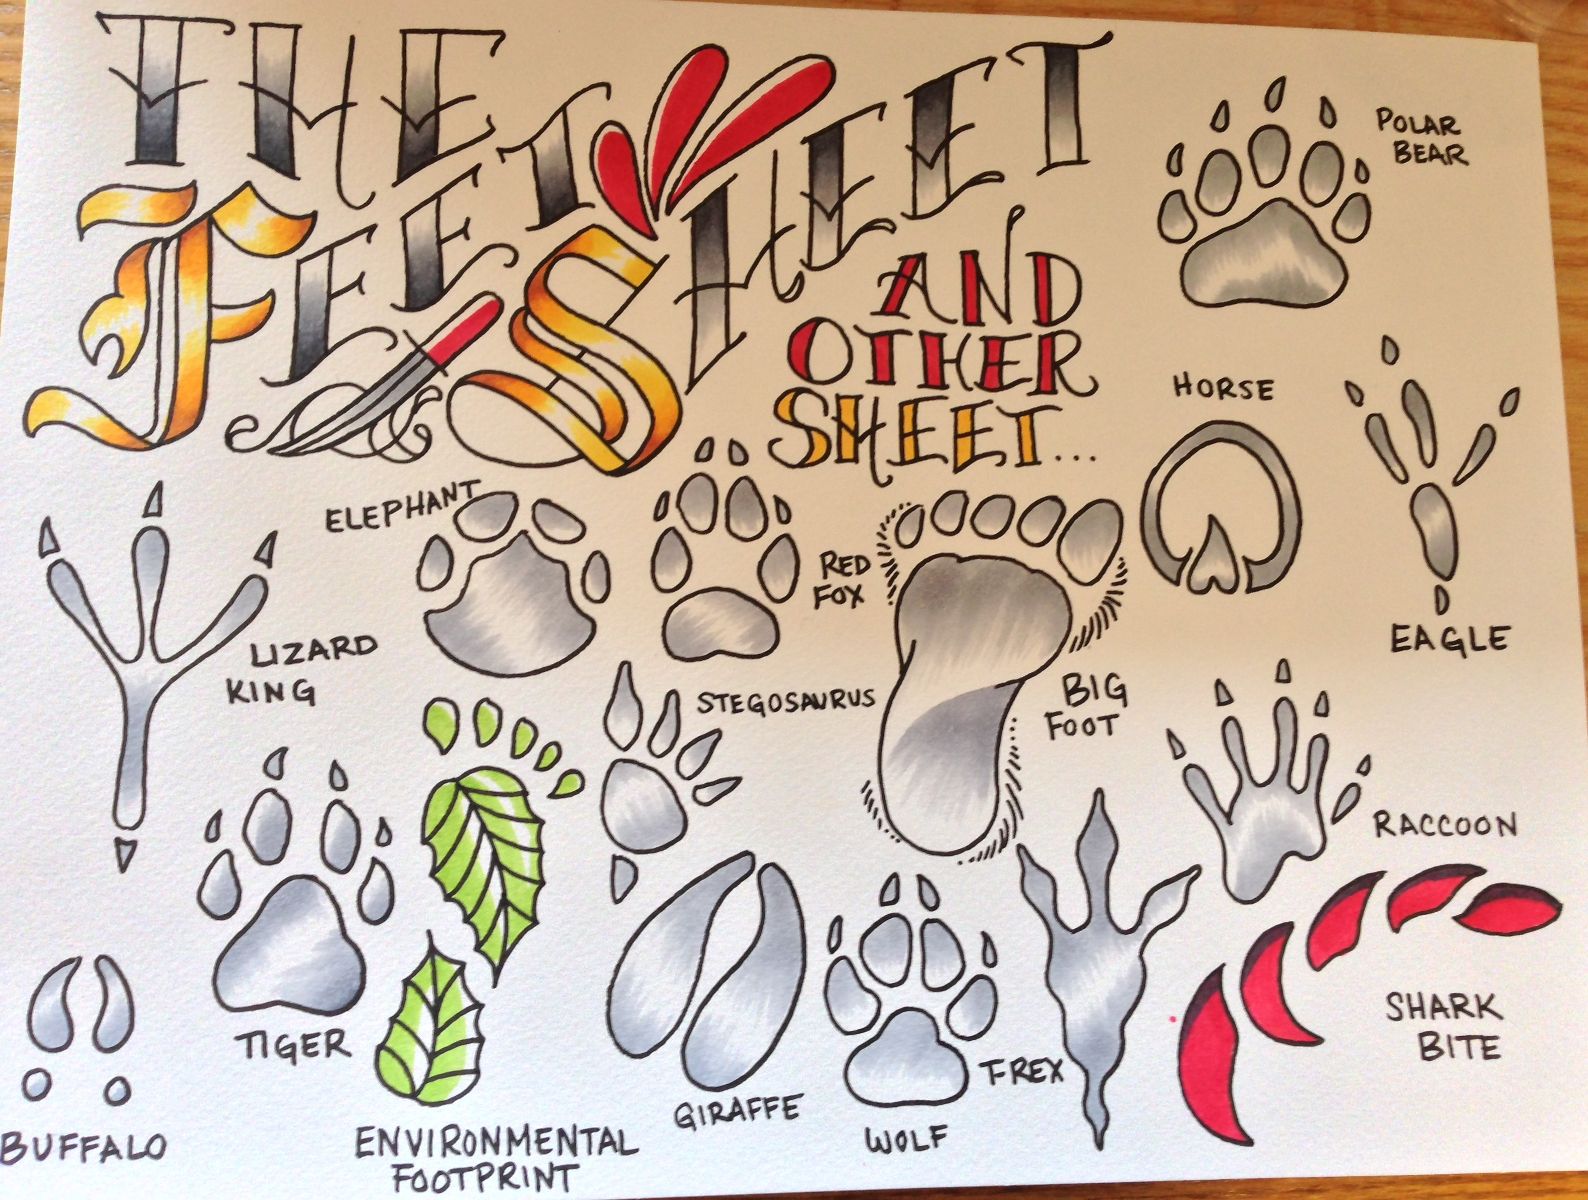 THE
FEET SHEET
AND
OTHER
SHEET...
POLAR
BEAR
HORSE
EAGLE
ELEPHANT
RED
FOX
LIZARD
KING
STEGOSAURUS
BIG
FOOT
RACCOON
TIGER
SHARK
BITE
T-REX
GIRAFFE
WOLF
BUFFALO
ENVIRONMENTAL
FOOTPRINT